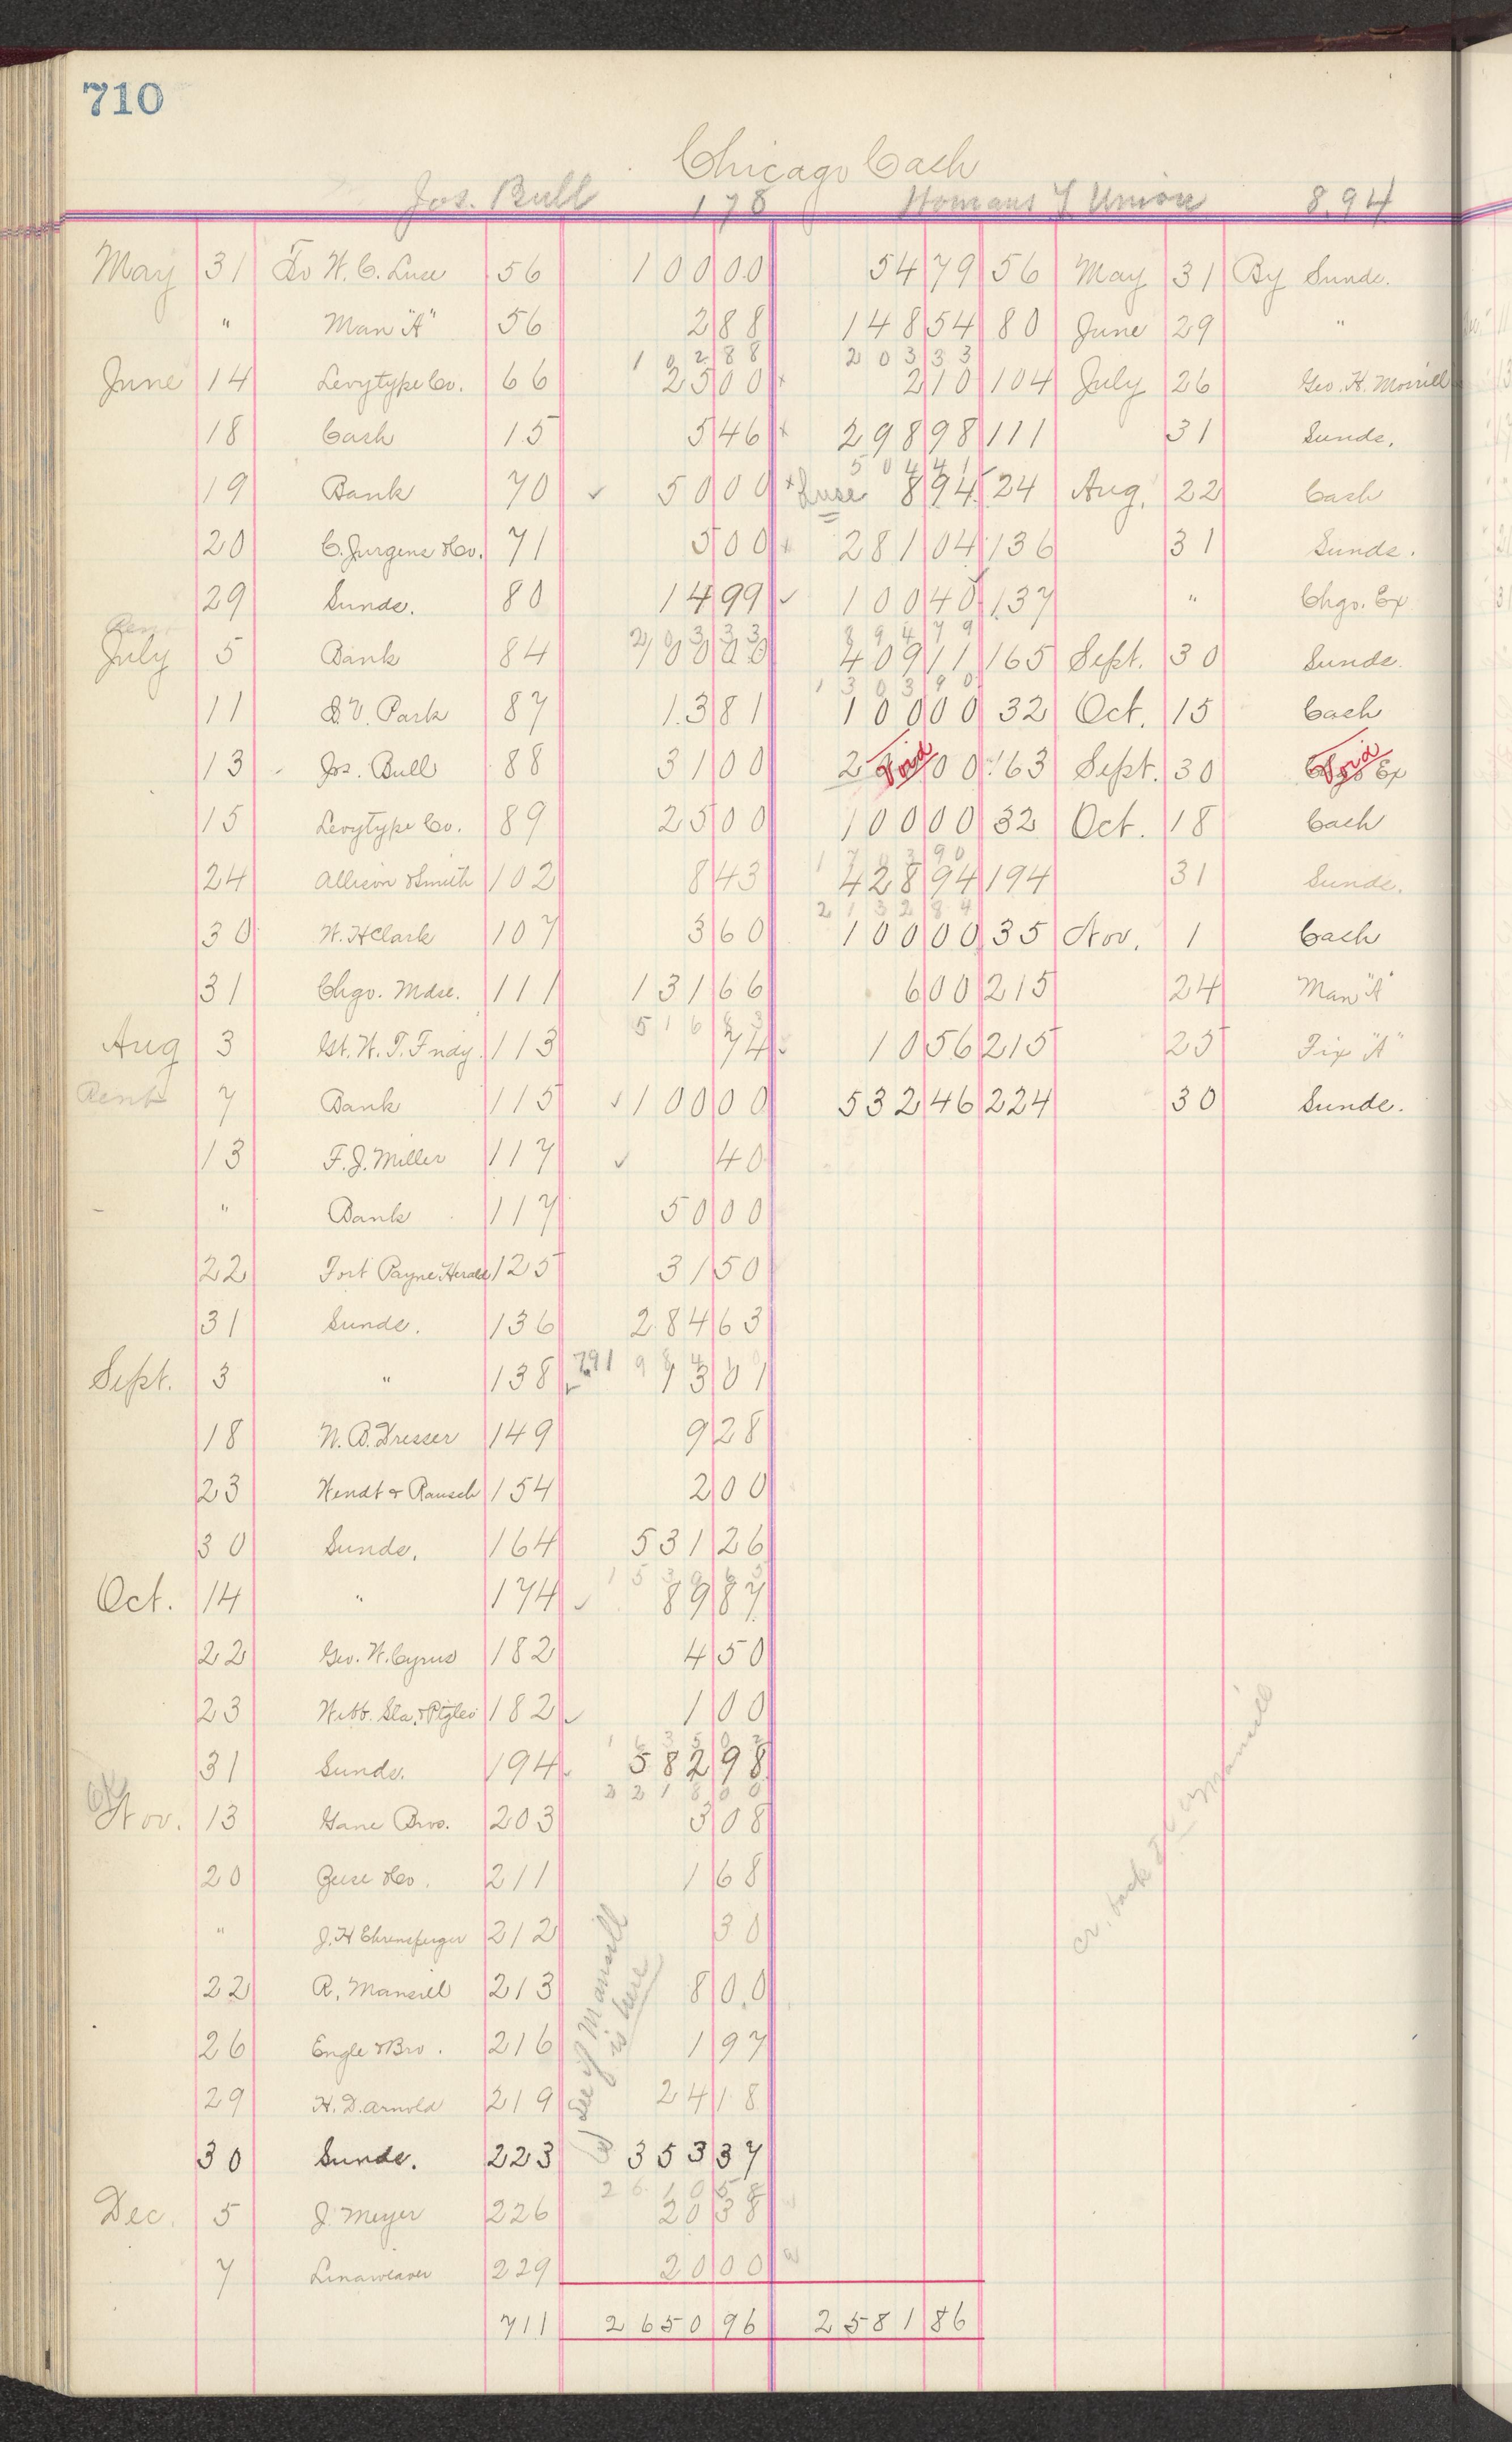 710
Chicago Cash
Jos. Bull 178 Homans & Union 8.94
May 31 To W. C. Luse 56 100 00 54 79 56 May 31 By Sunds.
" Man "A" 56 2 88 148 54 80 June 29 "
1 0 2 88 2 0 3 3 3
June 14 Levytype Co. 66 25 00 2 10 104 July 26 Geo. H. Morrill
18 Cash 15 5 46 298 98 111 31 Sunds.
5 0 4 4 1
19 Bank 70 ✓ 50 00 Luse 8 94 24 Aug. 22 Cash
20 C. Jurgens & Co. 71 5 00 281 04 136 31 Sunds.
29 Sunds. 80 14 99 ✓ 100 40 137 " Chgo. Ex
2 0 3 3 3 8 9 4 7 9
July 5 Bank 84 100 00 409 11 165 Sept. 30 Sunds.
1 3 0 3 9 0
11 S. V. Park 87 13 81 100 00 32 Oct. 15 Cash
13 Jos. Bull 88 31 00 Void 00 163 Sept. 30 Void Ex
15 Levytype Co. 89 25 00 100 00 32 Oct. 18 Cash
1 7 0 3 9 0
24 Allison & Smith 102 8 43 428 94 194 31 Sunds.
2 1 3 2 8 4
30 W. H Clark 107 3 60 100 00 35 Nov. 1 Cash
31 Chgo. Mdse. 111 131 66 6 00 215 24 Man "A"
Aug 3 Gt. W. T. Fndy. 113 74 10 56 215 25 Fix "A"
Rent 7 Bank 115 ✓ 100 00 532 46 224 30 Sunds.
13 F. J. Miller 117 ✓ 40
" Bank 117 50 00
22 Fort Payne Herald 125 31 50
31 Sunds. 136 284 63
Sept. 3 " 138 791 73 01
18 W. B. Dresser 149 9 28
23 Wendt & Rausch 154 2 00
30 Sunds. 164 531 26
1 5 3 9 6 3
Oct. 14 " 174 ✓ 89 87
22 Geo. W. Cyrus 182 4 50
23 182 ✓ 1 00
1 6 3 5 0 2
31 Sunds. 194 582 98
2 2 1 8 0 0
Nov. 13 Gane Bros. 203 3 08
20 Guse & Co. 211 1 68
" J. H Ehrensperger 212 30
22 R. Mansill 213 8 00
26 Engle & Bro. 216 1 97
29 H. D. Arnold 219 24 18
See if Mansill
is here
cr. back to Mansill
30 Sunds. 223 353 37
2 6 1 0 5 8
Dec. 5 J. Meyer 226 20 38
7 Linaweaver 229 20 00
711 2650 96 2581 86